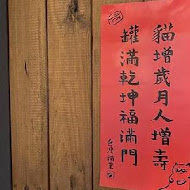 貓增歲月人增壽
罐滿乾坤福滿門